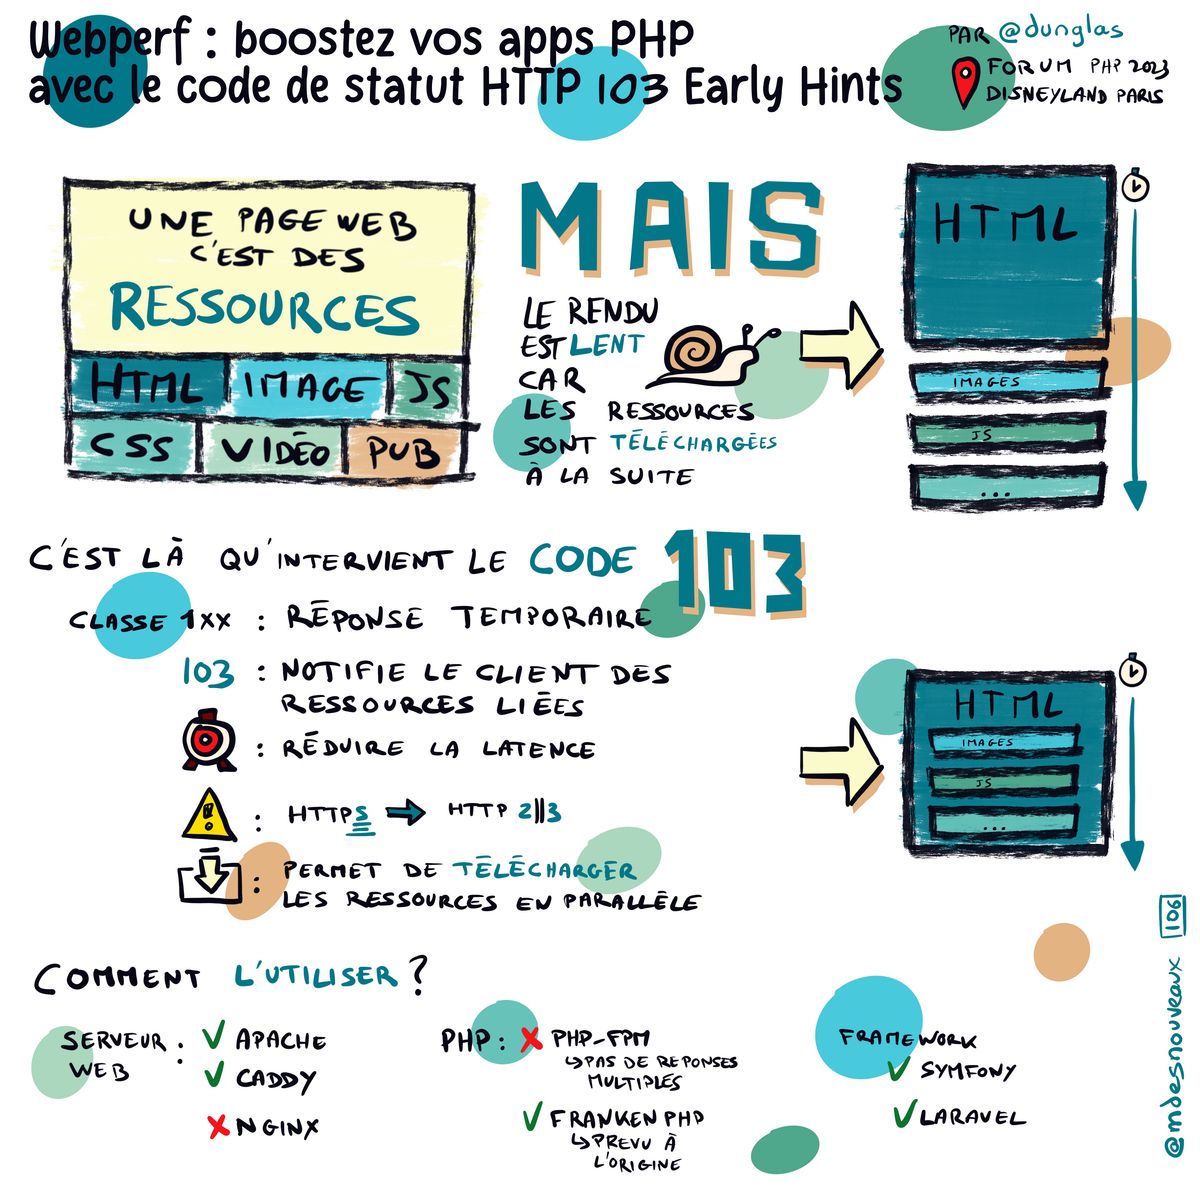 Webperf : boostez vos apps PHP
avec le code de statut HTTP 103 Early Hints
PAR @dunglas
FORUM PHP 2023
DISNEYLAND PARIS
UNE PAGE WEB
C'EST DES
RESSOURCES
HTML IMAGE JS
CSS VIDÉO PUB
MAIS
LE RENDU
EST LENT
CAR
LES RESSOURCES
SONT TÉLÉCHARGÉES
À LA SUITE
HTML
IMAGES
JS
...
C'EST LÀ QU'INTERVIENT LE CODE 103
CLASSE 1XX : RÉPONSE TEMPORAIRE
103 : NOTIFIE LE CLIENT DES
RESSOURCES LIÉES
: RÉDUIRE LA LATENCE
: HTTPS → HTTP 2||3
: PERMET DE TÉLÉCHARGER
LES RESSOURCES EN PARALLÈLE
HTML
IMAGES
JS
...
COMMENT L'UTILISER ?
SERVEUR WEB :
✓ APACHE
✓ CADDY
✗ NGINX
PHP : ✗ PHP-FPM
↳ PAS DE REPONSES
MULTIPLES
✓ FRANKENPHP
↳ PREVU À
L'ORIGINE
FRAMEWORK
✓ SYMFONY
✓ LARAVEL
@mdesnouveaux 106